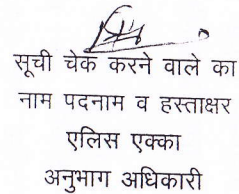 सूची चेक करने वाले का
नाम पदनाम व हस्ताक्षर
एलिस एक्का
अनुभाग अधिकारी